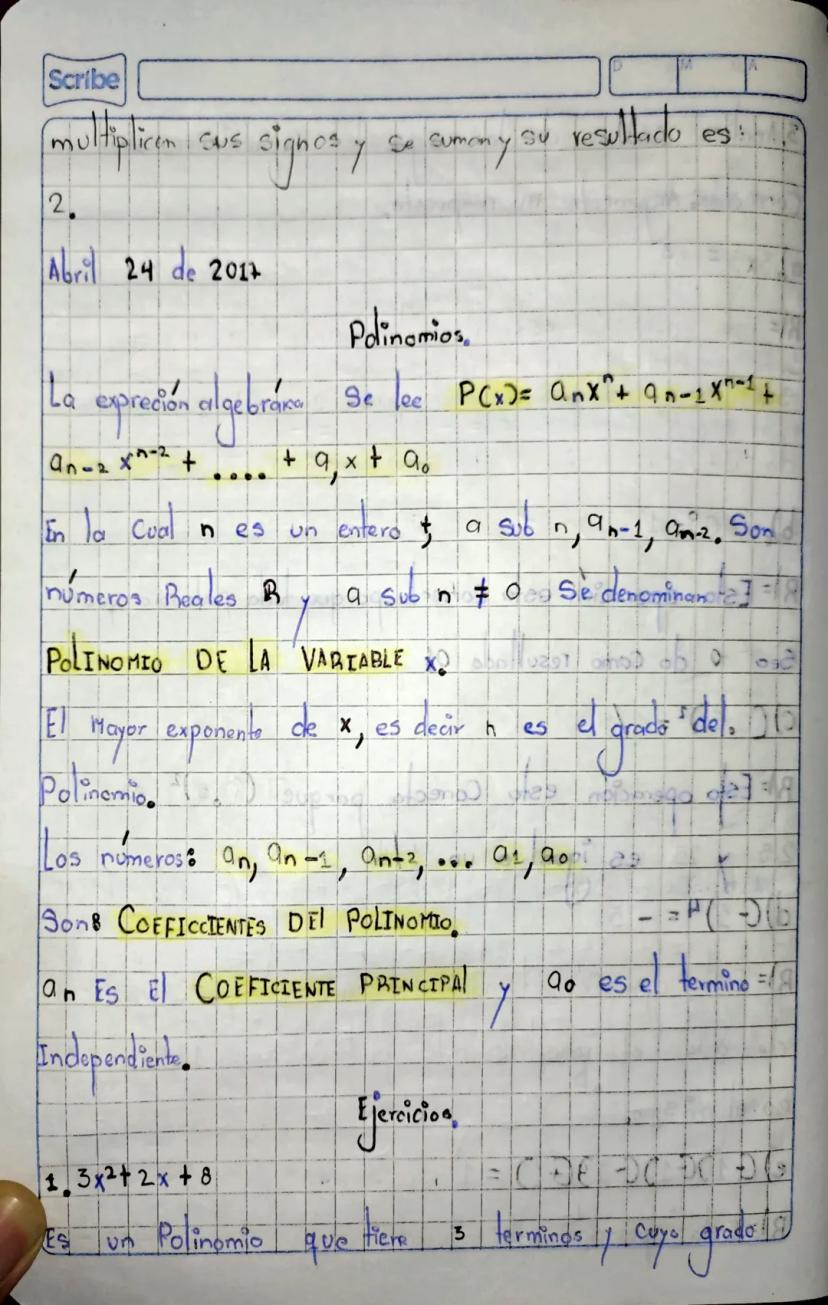 Scribe
D M A
multiplican sus signos y se suman y su resultado es:
2.
Abril 24 de 2017
Polinomios.
La expreción algebráica Se lee P(x)= aₙxⁿ + aₙ₋₁xⁿ⁻¹ +
aₙ₋₂ xⁿ⁻² + .... + a₁x + a₀
En la Cual n es un entero +, a sub n, aₙ₋₁, aₙ₋₂. Son
números Reales R y a sub n ≠ 0 Se denominan
POLINOMIO DE LA VARIABLE x.
El Mayor exponente de x, es decir n es el grado del.
Polinomio.
Los números: aₙ, aₙ₋₁, aₙ₋₂, ... a₁, a₀
Son: COEFICCIENTES DEl POLINOMIO.
aₙ Es El COEFICIENTE PRINCIPAl y a₀ es el termino
Independiente.
Ejercicios.
1. 3x²+ 2x + 8
Es un Polinomio que tiene 3 terminos y cuyo grado